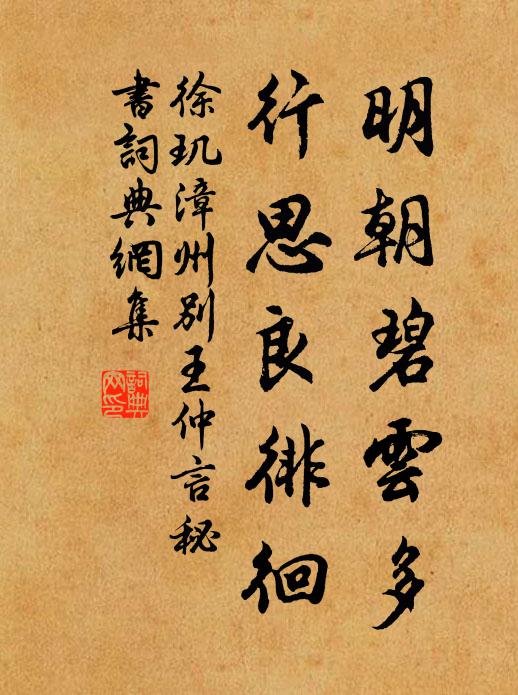 明朝碧雲多
行思良徘徊
徐玑漳州別王仲言秘
書詞典網集
詞典
网印